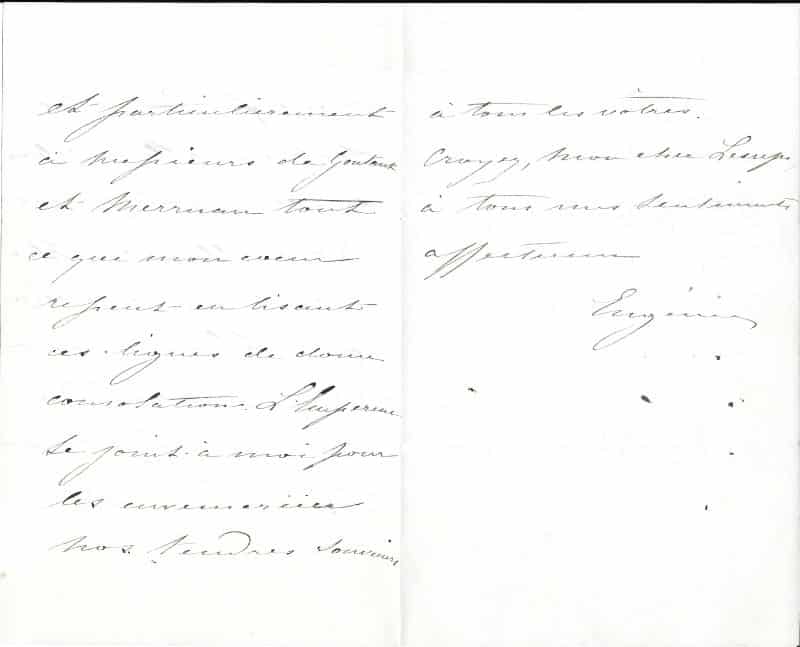 et particulièrement
à Messieurs de Gontaut
et Merruau tout
ce que mon cœur
ressent en lisant
ces lignes de douce
consolation. L'Empereur
se joint à moi pour
les remercier
nos tendres souvenirs
à tous les vôtres.
Croyez, mon cher Lesseps,
à tous mes sentiments
affectueux
Eugénie